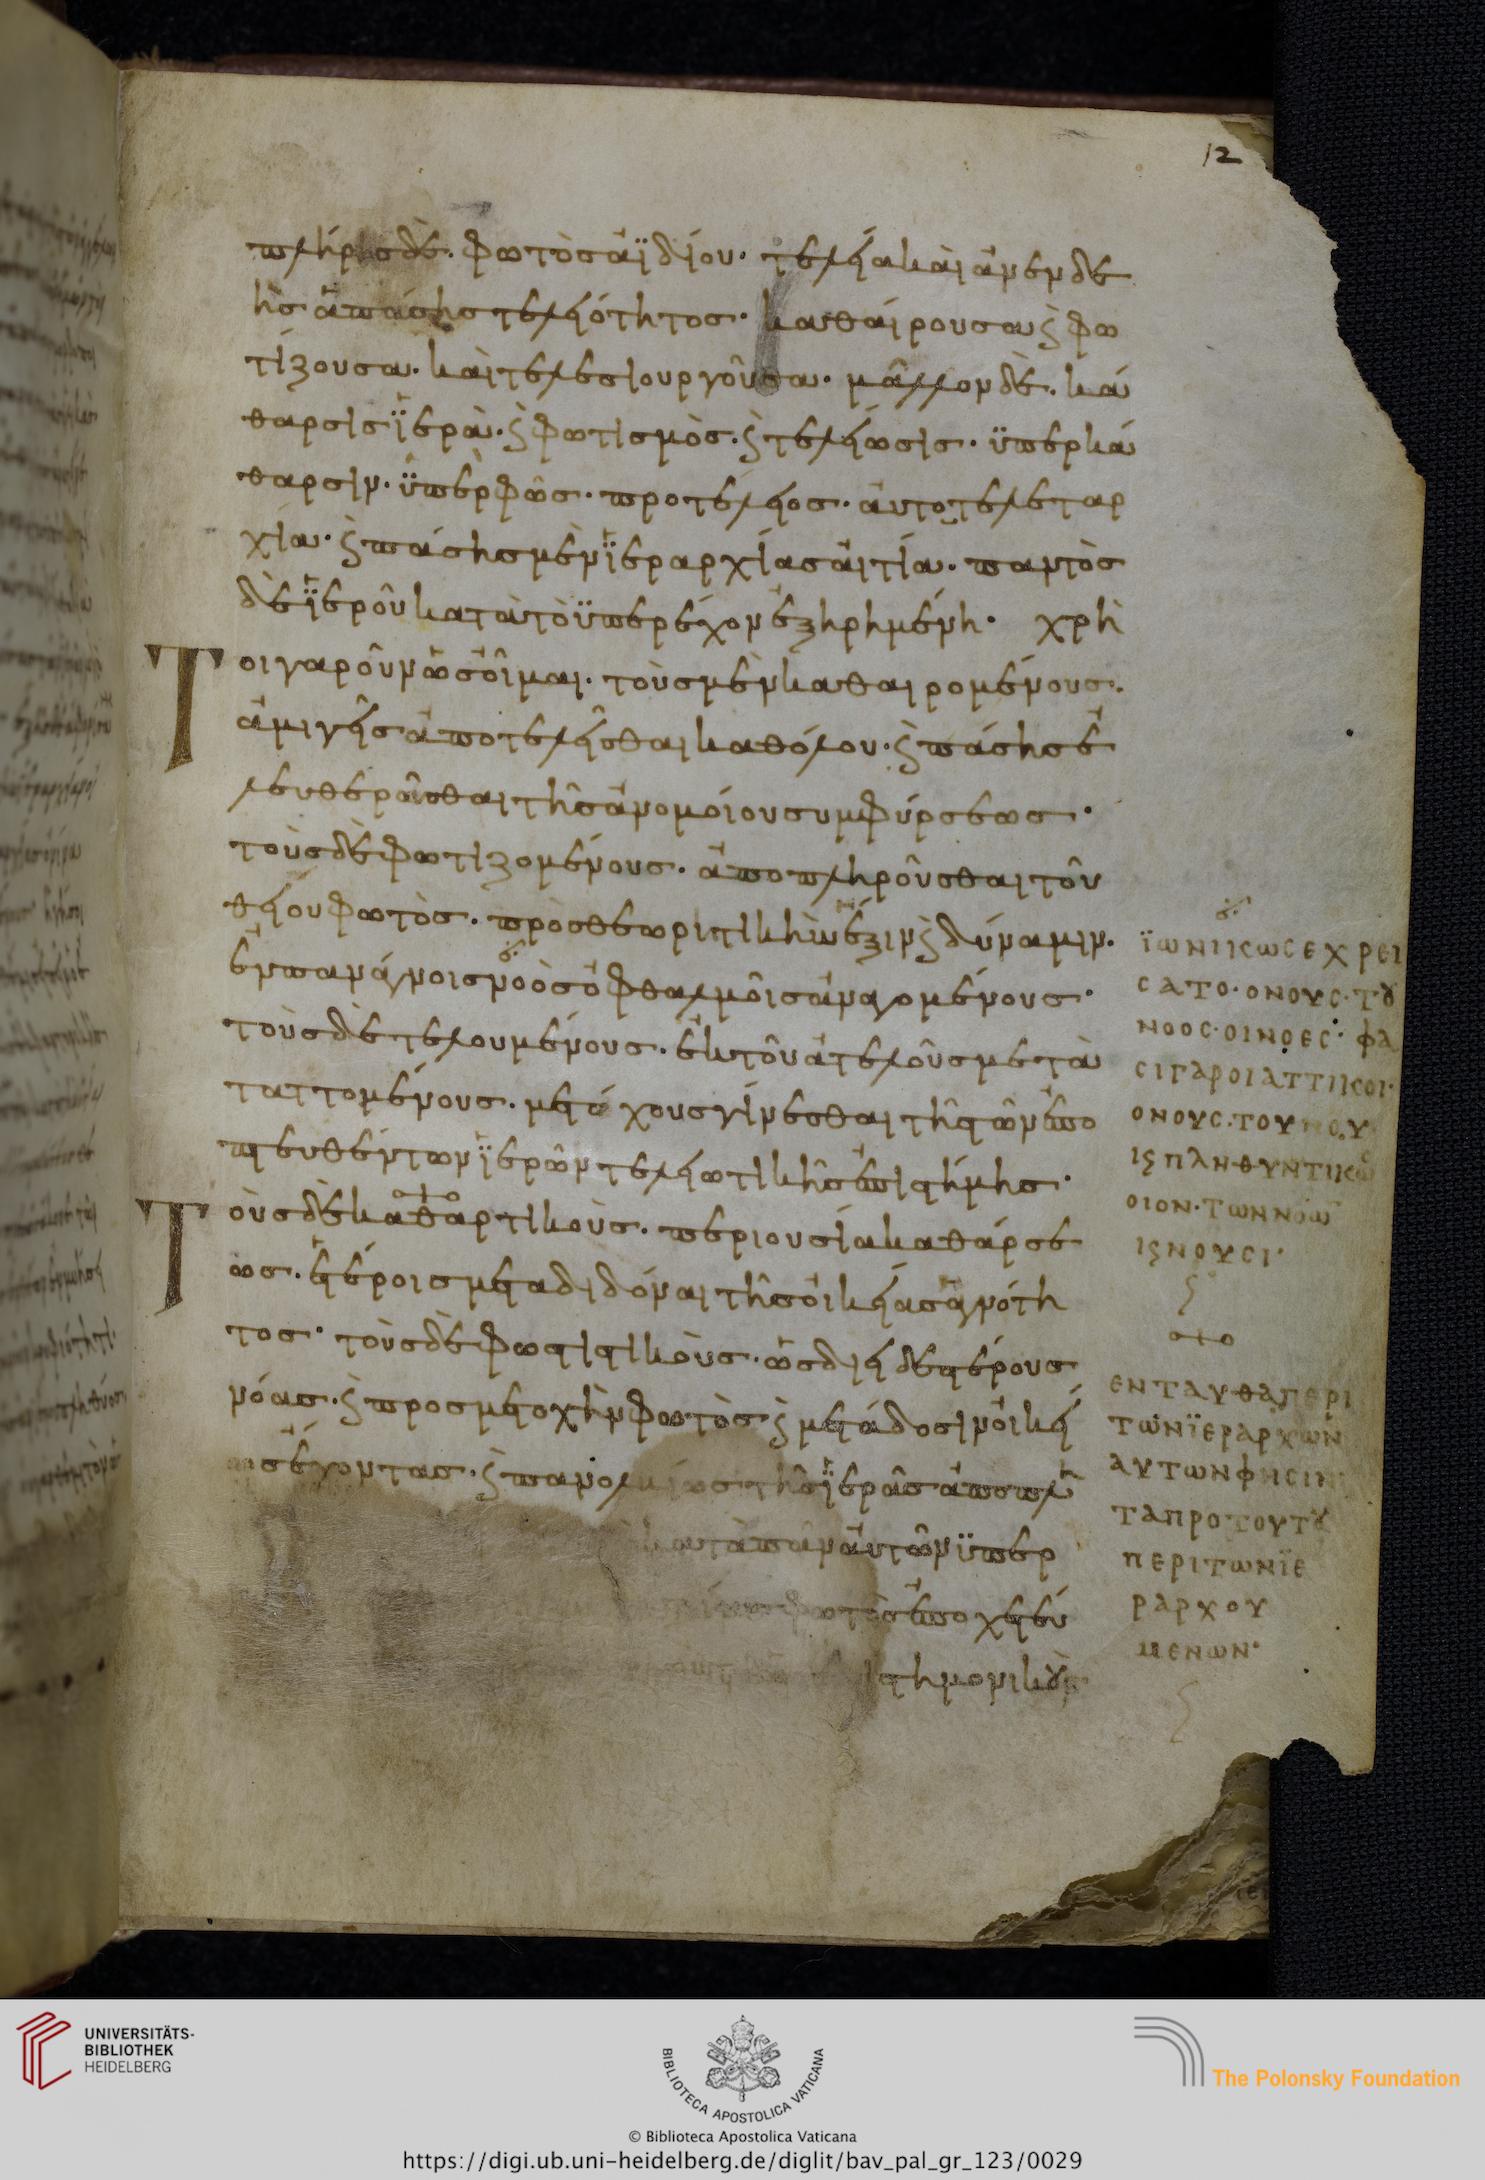 12
πλήρης δὲ· φωτὸς ἀϊδίου· τελεία καὶ ἀνενδε
ὴς ἁπάσης τελειότητος· καθαίρουσα ϗ φω
τίζουσα· καὶ τελεσιουργοῦσα· μᾶλλον δὲ· κά
θαρσις ἱερὰ· ϗ φωτισμὸς· ϗ τελείωσις· ὑπερκά
θαρσιν· ὑπὲρ φῶς· προτέλειος· αὐτοτελεταρ
χία· ϗ πάσης μὲν ἱεραρχίας αἰτία· παντὸς
δὲ ἱεροῦ κατὰ τὸ ὑπερέχον ἐξηρημένη· χρὴ
Τοιγαροῦν ὡς οἶμαι· τοὺς μὲν καθαιρομένους·
ἀμιγεῖς ἀποτελεῖσθαι καθόλου· ϗ πάσης ἐ
λευθερᾶσθαι τῆς ἀνομοίου συμφύρσεως·
τοὺς δὲ φωτιζομένους· ἀποπληροῦσθαι τοῦ
θείου φωτὸς· πρὸς θεωρητικὴν ἕξιν ϗ δύναμιν·
ἐν πανάγνοις νοὸς ὀφθαλμοῖς ἀναγομένους·
τοὺς δὲ τελουμένους· ἐκ τοῦ ἀτελοῦς μετα
ταττομένους· μετόχους γίνεσθαι τῆς τῶν ἐπο
πτευθέντων ἱερῶν τελειωτικῆς ἐπιστήμης·
Τοὺς δὲ καθαρτικοὺς· περιουσία καθάρσε
ως· ἑτέροις μεταδιδόναι τῆς οἰκείας ἁγνότη
τος· τοὺς δὲ φωτιστικοὺς· ὡς διειδεστέρους
νόας· ϗ πρὸς μετοχὴν φωτὸς ϗ μετάδοσιν οἰκεί
ως ἔχοντας· ϗ πανολ τῆς ἱερᾶς ἀποπλη
κατὰ πᾶν αὐτῶν ὑπερ
φωτὸς ἐποχετεύ
ιστημονικοὺς
ἰωνικως εχρει
σατο· ονους· τοῦ
νοος· οινοες· φα
σι γαροι αττικοι·
ονους· του νου
ις πληθυντικῶ
οιον· των νοῶ
ις νουσι·
ενταυθα περι
των ἱεραρχων
αυτων φησιν·
τα προ τουτοῦ
περι των ἱε
ραρχου
μενων·
UNIVERSITÄTS-
BIBLIOTHEK
HEIDELBERG
BIBLIOTECA APOSTOLICA VATICANA
The Polonsky Foundation
© Biblioteca Apostolica Vaticana
https://digi.ub.uni-heidelberg.de/diglit/bav_pal_gr_123/0029